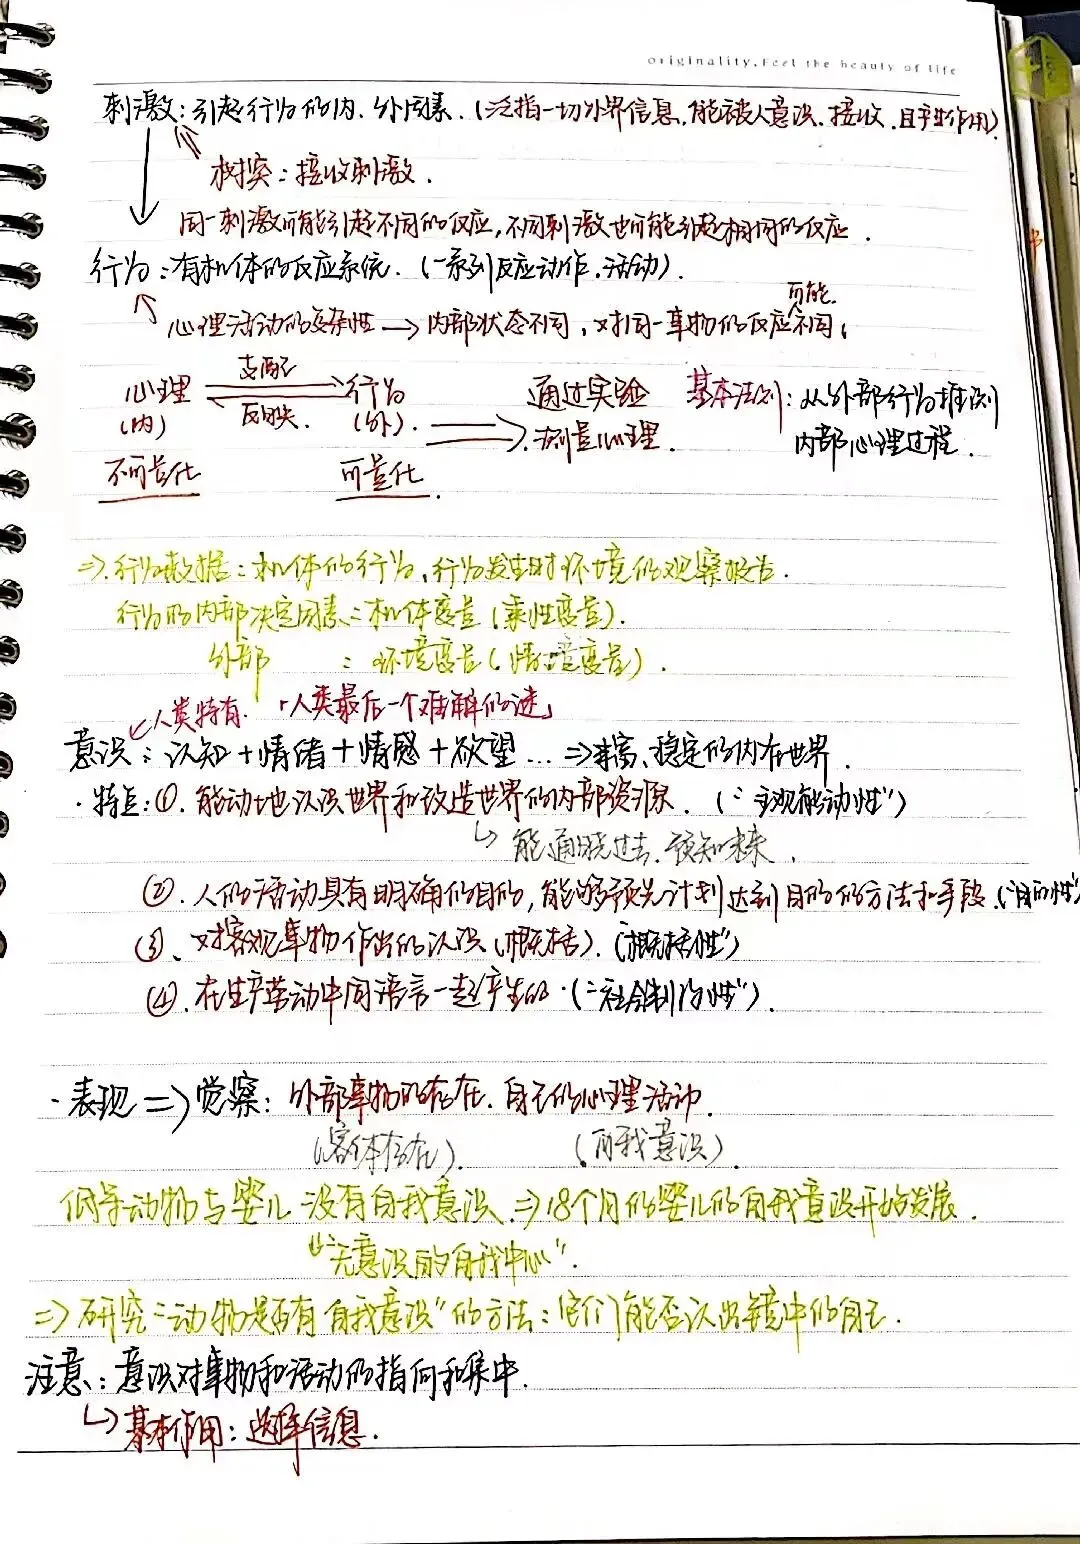 originality, Feel the beauty of life
刺激：引起行为的内、外因素．（泛指一切外界信息，能被人意识、接收，且产生作用）
探索：接收刺激．
同一刺激可能引起不同的反应，不同刺激也可能引起相同的反应．
行为：有机体的反应系统．（一系列反应动作、活动）．
可能
心理活动的复杂性→内部状态不同，对同一事物的反应不同；
心理 支配 行为 通过实验 基本法则：从外部行为推测
（内） 反映． （外）． 测量心理． 内部心理过程．
不可量化 可量化．
⇒行为数据：机体的行为，行为发生时环境的观察报告．
行为的内部决定因素：机体变量（秉性变量）．
外部 ：环境变量（情境变量）．
人类特有．「人类最后一个难解的谜」
意识：认知＋情绪＋情感＋欲望…⇒丰富、稳定的内在世界．
·特点：①．能动地认识世界和改造世界的内部资源．（“主观能动性”）
↳能通晓过去、预知未来．
②．人的活动具有明确的目的，能够预先计划达到目的的方法和手段．（“目的性”
③、对客观事物作出的认识（概括）．（“概括性”）
④．在生产劳动中同语言一起产生的．（“社会制约性”）．
·表现⇒觉察：外部事物的存在．自己的心理活动．
（客体存在）． （自我意识）．
低等动物与婴儿没有自我意识．⇒18个月的婴儿的自我意识开始发展．
“无意识的自我中心”．
⇒研究“动物是否有自我意识”的方法：它们能否认出镜中的自己．
注意：意识对事物和活动的指向和集中．
↳基本作用：选择信息．